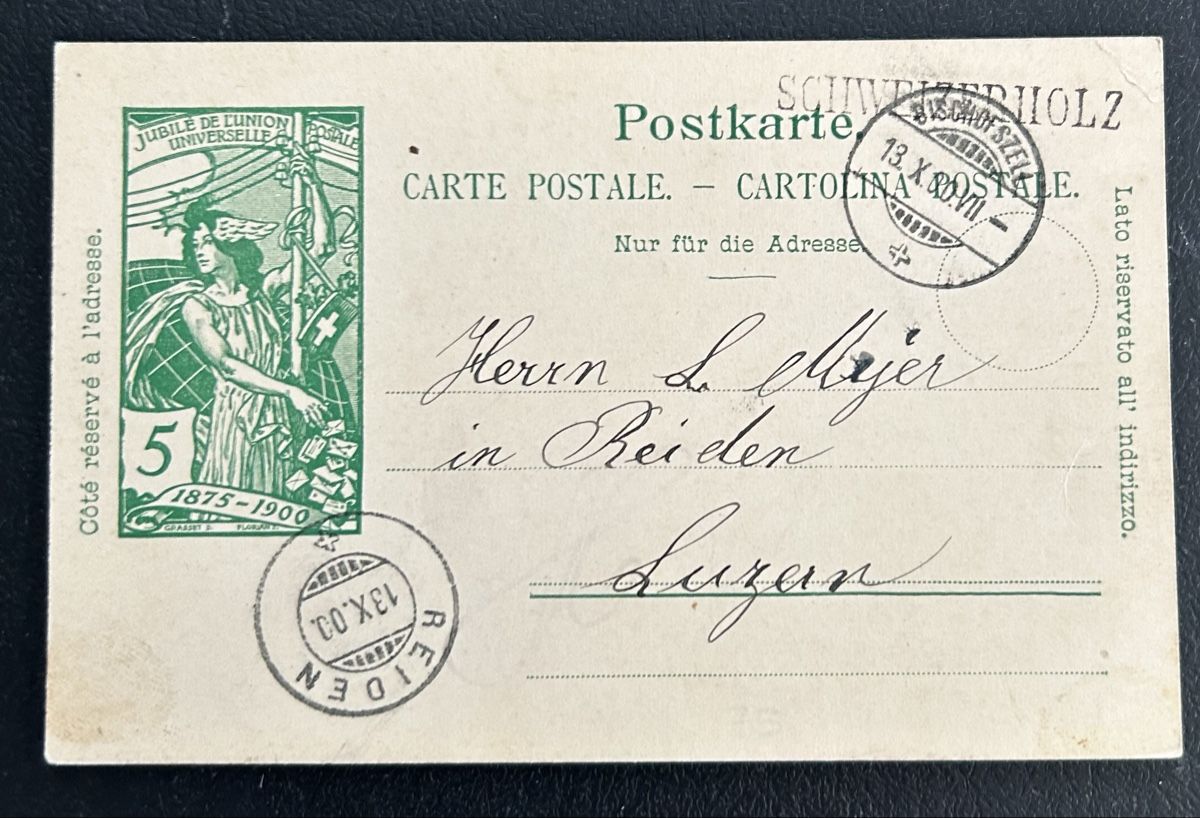 SCHWEIZERHOLZ
Postkarte.
CARTE POSTALE. — CARTOLINA POSTALE.
Nur für die Adresse.
BISCHOFSZELL
13. X. 00. VII
JUBILÉ DE L'UNION
UNIVERSELLE POSTALE
5
1875-1900
GRASSET D. FLORIAN S.
Côté réservé à l'adresse.
Lato riservato all' indirizzo.
Herrn L. Meyer
in Reiden
Luzern
REIDEN
13. X. 00.